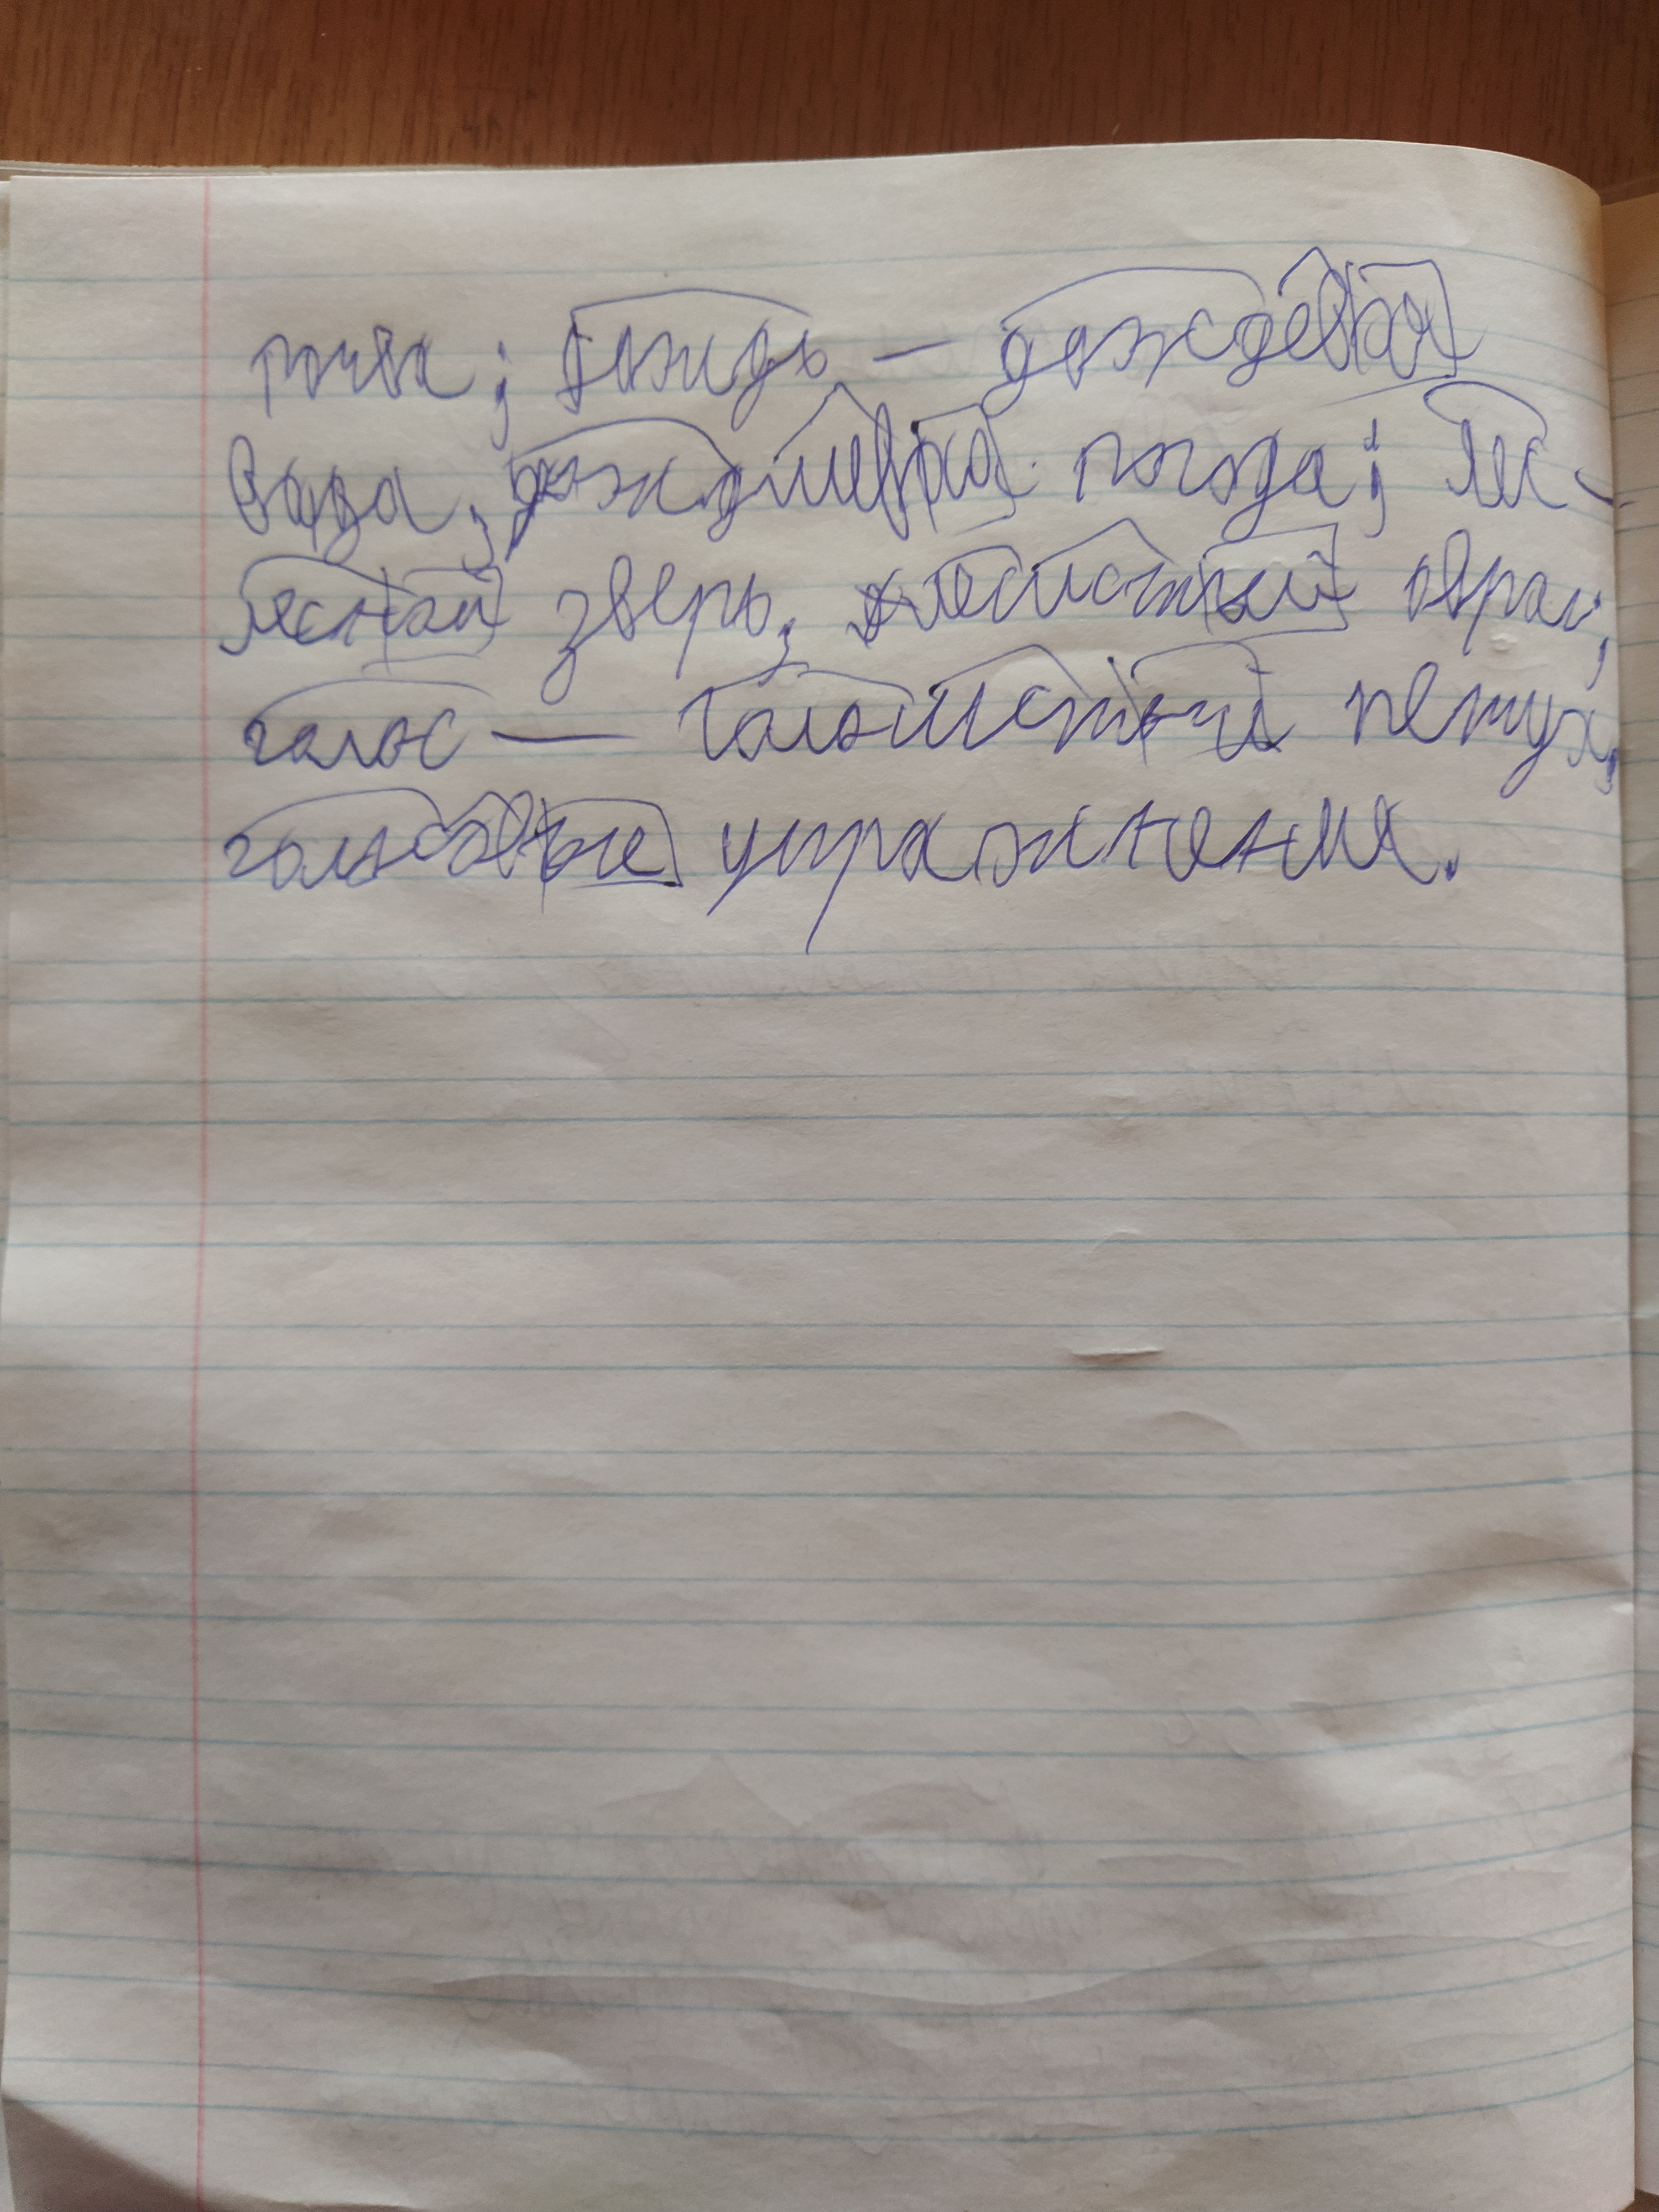 почва; дождь — дождевая
вода, дождливая погода; лес —
лесной зверь, лесистый овраг;
голос — голосистый петух,
голосовые упражнения.